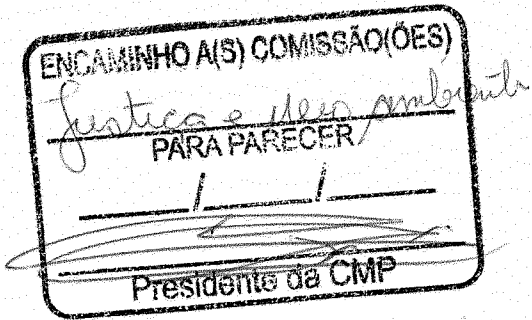 ENCAMINHO A(S) COMISSÃO(ÕES)
Justiça e Meio ambiente
PARA PARECER
/ /
Presidente da CMP